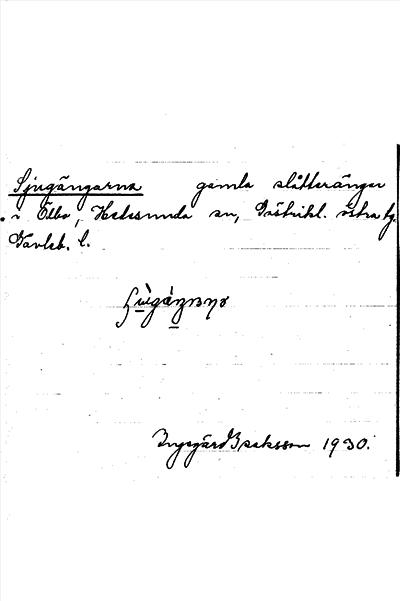 Sjugångarna gamla slåtterängar
i Ölbo, Hedesunda sn, Gästrikl. östra tg.
Gävleb. l.
Ingegärd Isaksson 1930.